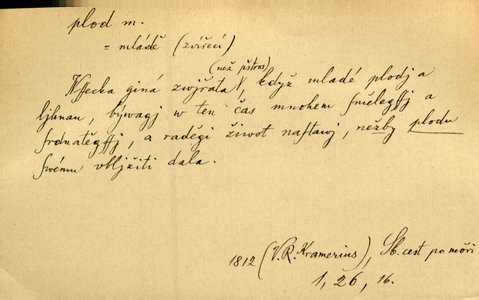 plod m.
= mládě (zvířecí)
(než pštros)
Wssecka giná zwjřata V, když mladé plodj a
ljhnau, býwagj w ten čas mnohem smělegssj a
srdnatěgssj, a raděgi život nastawj, nežby plodu
swému vbljžiti dala.
1812 (V. R. Kramerius), Sb. cest po moři
1, 26, 16.